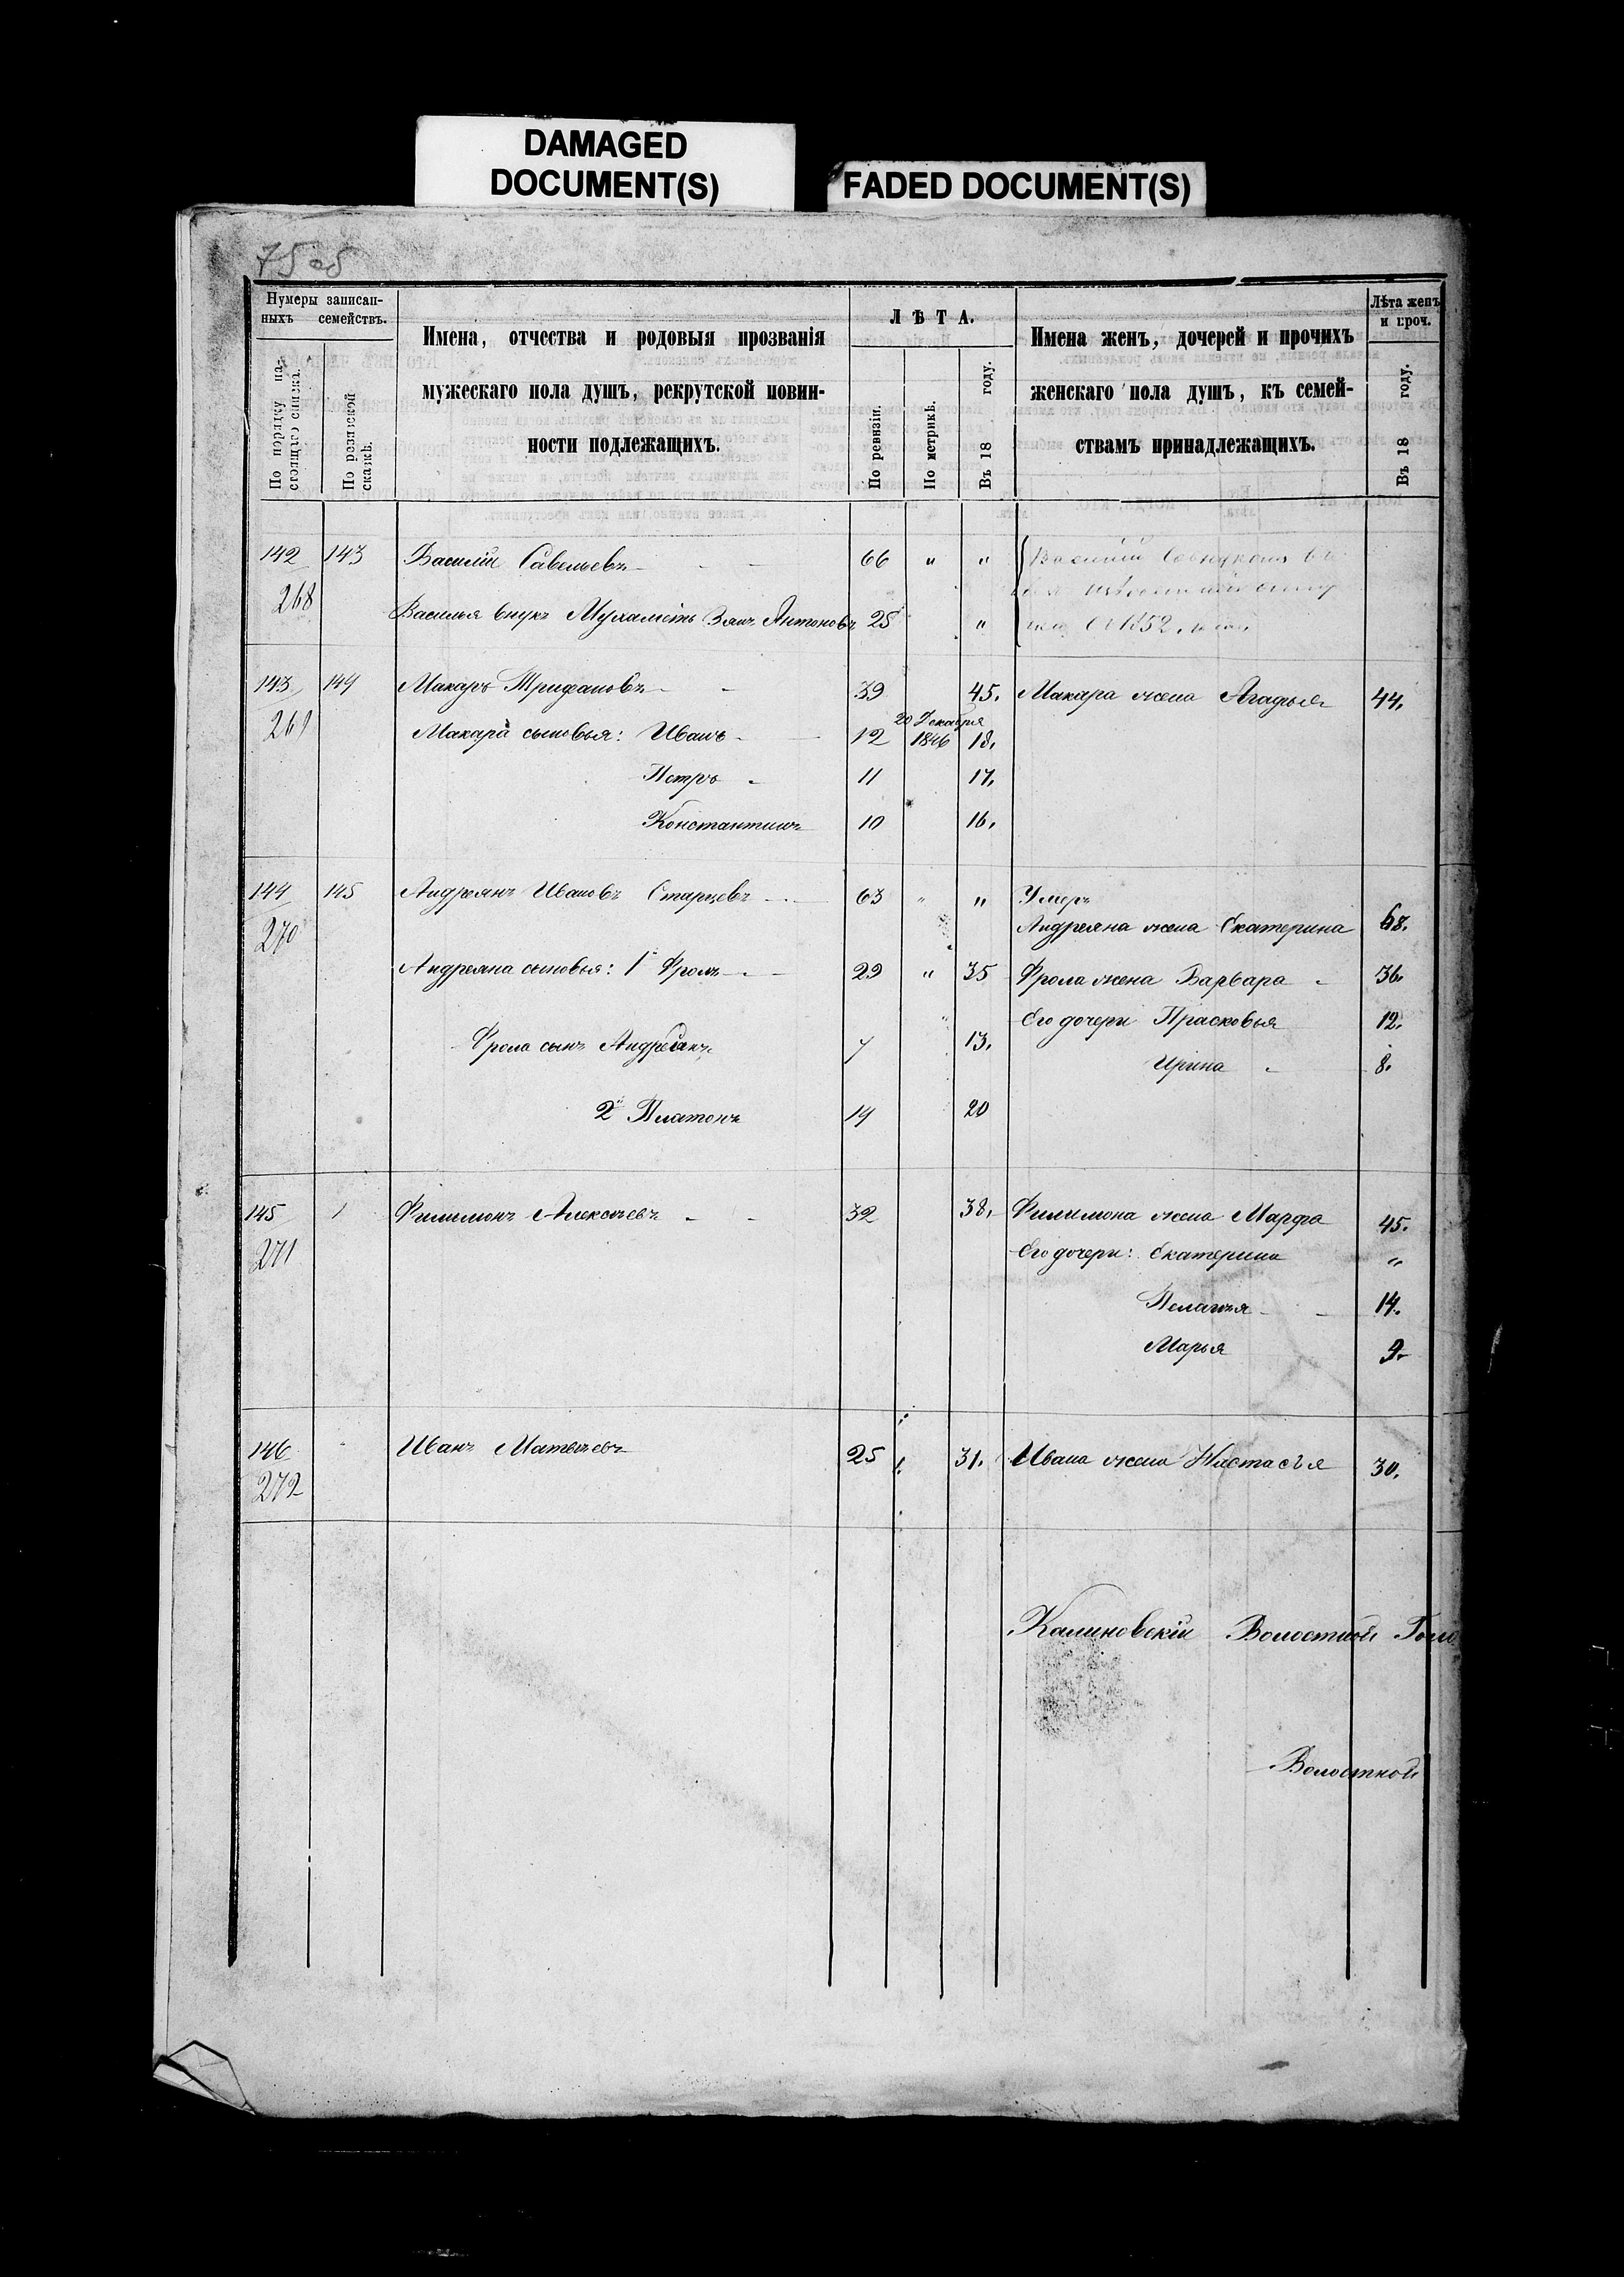 DAMAGED
DOCUMENT(S)
FADED DOCUMENT(S)
75 об
Нумеры записан-
ныхъ семействъ.
По порядку на-
стоящаго списка.
По ревизской
сказкѣ.
Имена, отчества и родовыя прозванія
мужескаго пола душъ, рекрутской повин-
ности подлежащихъ.
ЛѢТА.
По ревизіи.
По метрикѣ.
Въ 18 году.
Имена женъ, дочерей и прочихъ
женскаго пола душъ, къ семей-
ствамъ принадлежащихъ.
Лѣта женъ
и проч.
Въ 18 году.
142 143 Василій Савельевъ 66 " " Василій
268 Василья внукъ Антоновъ 25 " 1852
143 144 Макаръ Трифановъ 39 45. Макара жена Агафья 44.
269 Макара сыновья: Иванъ 12 20 Декабря 1846 18.
Петръ 11 17.
Константинъ 10 16.
144 145 Андреянъ Ивановъ Старцевъ 63 " " Умеръ
270 Андреяна жена Екатерина 68.
Андреяна сыновья: 1й Фролъ 29 " 35 Фрола жена Варвара 36.
Его дочери Прасковья 12.
Фрола сынъ Андреянъ 7 13.
Ирина 8.
2й Платонъ 14 20
145 Филимонъ Алексѣевъ 32 38. Филимона жена Марфа 45.
271 Его дочери: Екатерина "
Пелагея 14.
Марья 9.
146 Иванъ Матвѣевъ 25 31. Ивана жена Настасья 30.
272
Калиновскій Волостной Голо
Волостной